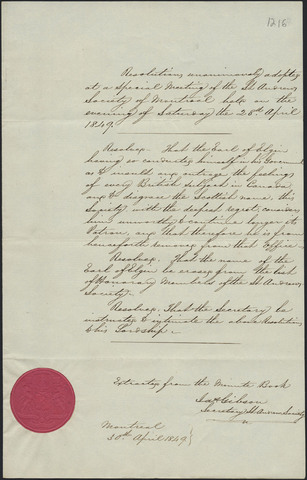 1216
Resolutions unanimously adopted
at a Special Meeting of the St Andrews
Society of Montreal held on the
evening of Saturday the 28th April
1849.
Resolved. That the Earl of Elgin
having so conducted himself in his Government
as to insult and outrage the feelings
of every British subject in Canada
and to disgrace the Scottish name, this
Society, with the deepest regret, consider
him unworthy to continue to be its
Patron, and that therefore he is from
henceforth removed from that Office.
Resolved. That the name of the
Earl of Elgin be erased from the list
of Honorary Members of the St Andrews
Society.
Resolved. That the Secretary be
instructed to intimate the above Resolutions
to his Lordship.
Extracted from the Minute Book
Gibson
Secretary St Andrews Society
Montreal
30th April 1849